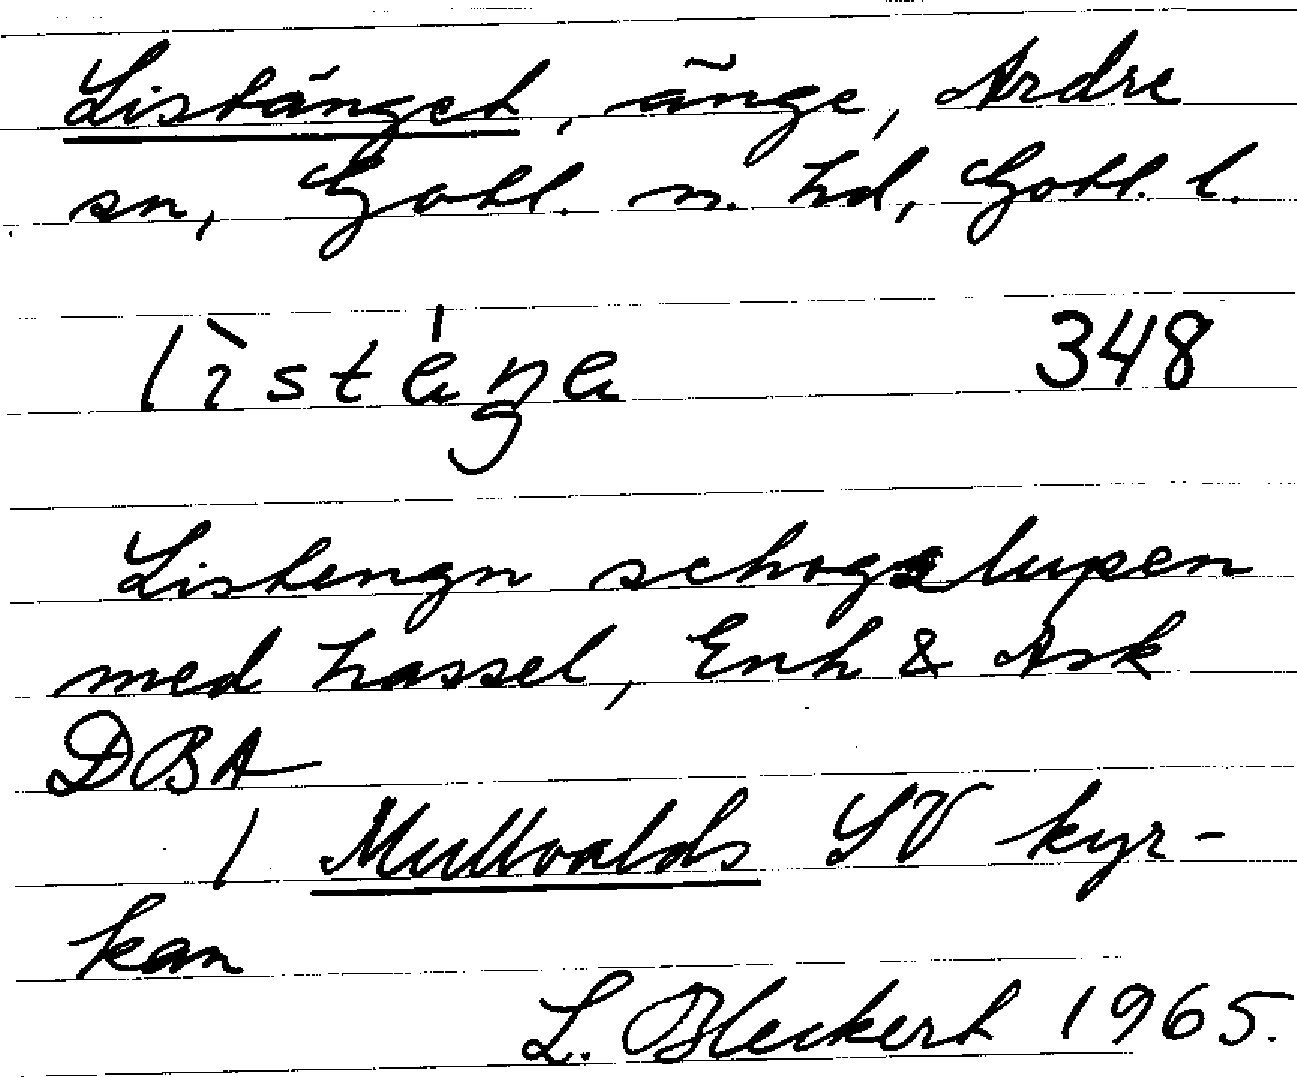 Listänget, änge, Ardre
sn, Gotl. n. hd, Gotl. l.
348
Listengn schogzlupen
med hassel, Enh & Ask
DBA
/ Mullvalds SV kyr-
kan
L. Bleckert 1965.